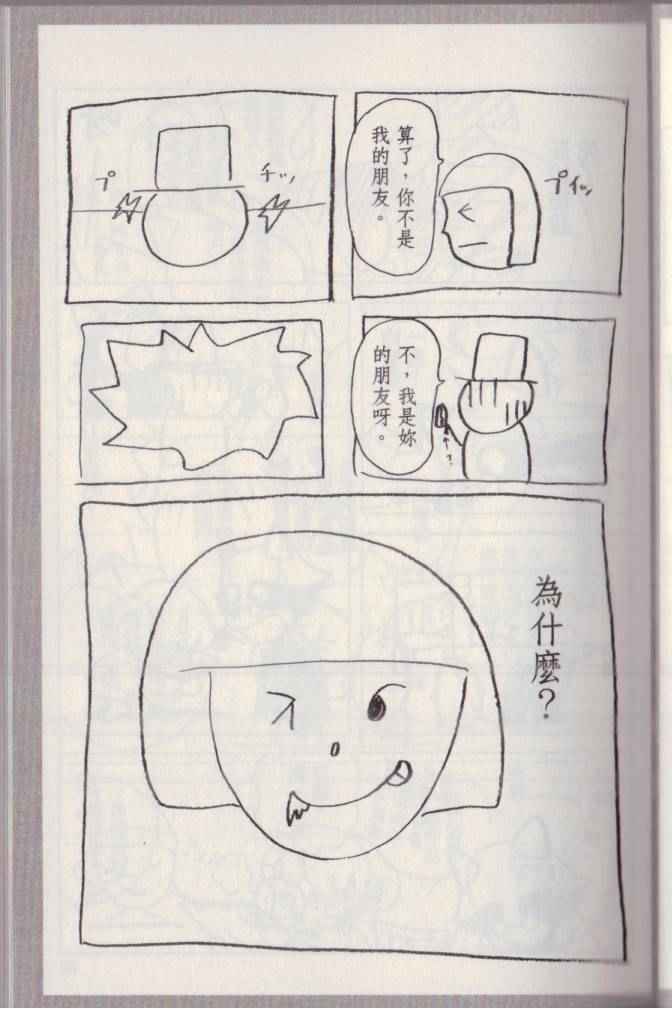 算了，你不是
我的朋友。
プイッ
チッ
プ
不，我是妳
的朋友呀。
?
為什麼？